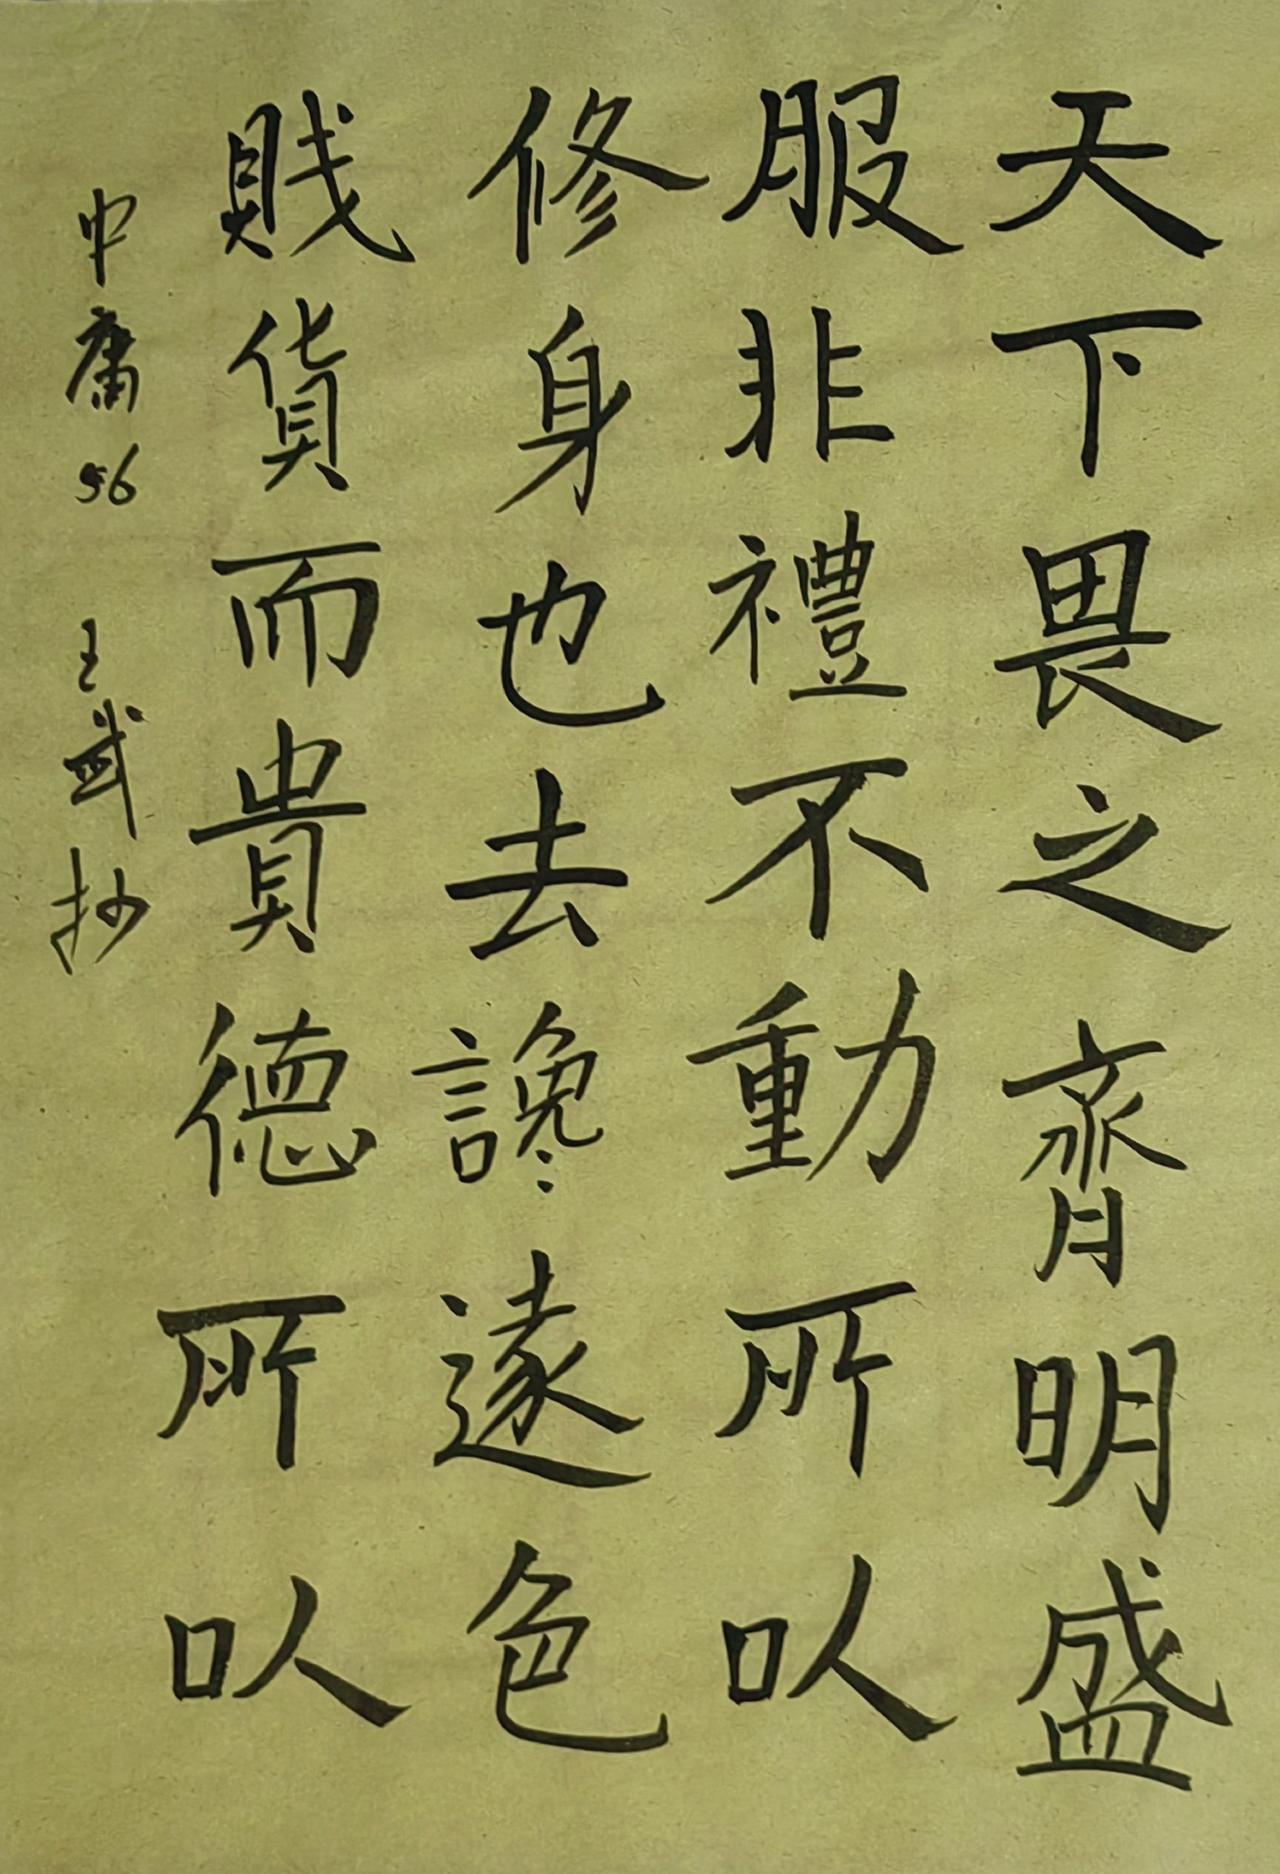 天下畏之齊明盛
服非禮不動所以
修身也去讒遠色
賤貨而貴德所以
中庸56 王武抄